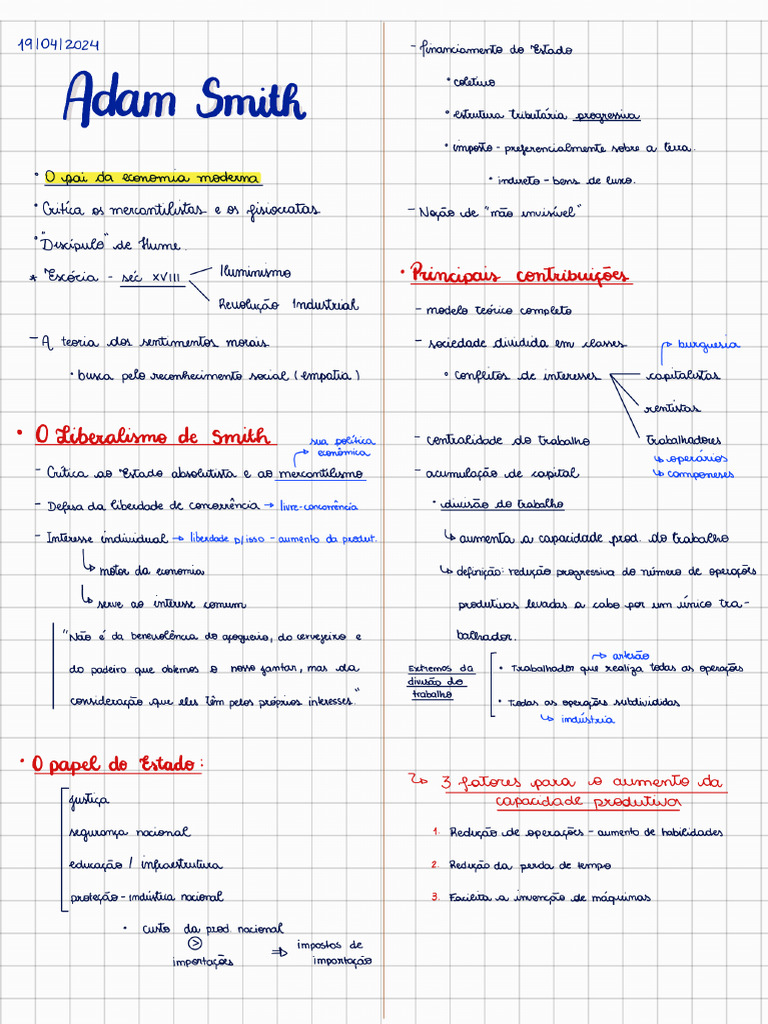 19/04/2024
Adam Smith
• O pai da economia moderna
• Crítica os mercantilistas e os fisiocratas
• "Discípulo" de Hume.
* Escócia - séc XVIII
Iluminismo
Revolução Industrial
- A teoria dos sentimentos morais
• busca pelo reconhecimento social (empatia)
• O Liberalismo de Smith
sua política
econômica
- Crítica ao Estado absolutista e ao mercantilismo
- Defesa da liberdade de concorrência → livre-concorrência
- Interesse individual → liberdade p/isso - aumento da produt.
↳ motor da economia
↳ serve ao interesse comum
"Não é da benevolência do açogueiro, do cervejeiro e
do padeiro que obtemos o nosso jantar, mas da
consideração que eles têm pelos próprios interesses."
• O papel do Estado:
justiça
segurança nacional
educação / infraestrutura
proteção - indústria nacional
• custo da prod. nacional
>
importações
⇒ impostos de
importação
- financiamento do Estado
• coletivo
• estrutura tributária progressiva
• imposto - preferencialmente sobre a terra.
• indireto - bens de luxo.
- Noção de "mão invisível"
• Principais contribuições
- modelo teórico completo
- sociedade dividida em classes
→ burguesia
• conflitos de interesses
capitalistas
rentistas
trabalhadores
↳ operários
↳ componeses
- centralidade do trabalho
- acumulação de capital
• divisão do trabalho
↳ aumenta a capacidade prod. do trabalho
↳ definição: redução progressiva do número de operações
produtivas levadas a cabo por um único tra-
balhador.
Extremos da
divisão do
trabalho
→ artesão
• Trabalhador que realiza todas as operações
• Todas as operações subdivididas
↳ indústria
↳ 3 fatores para o aumento da
capacidade produtiva
1. Redução de operações - aumento de habilidades
2. Redução da perda de tempo
3. Facilita a invenção de máquinas